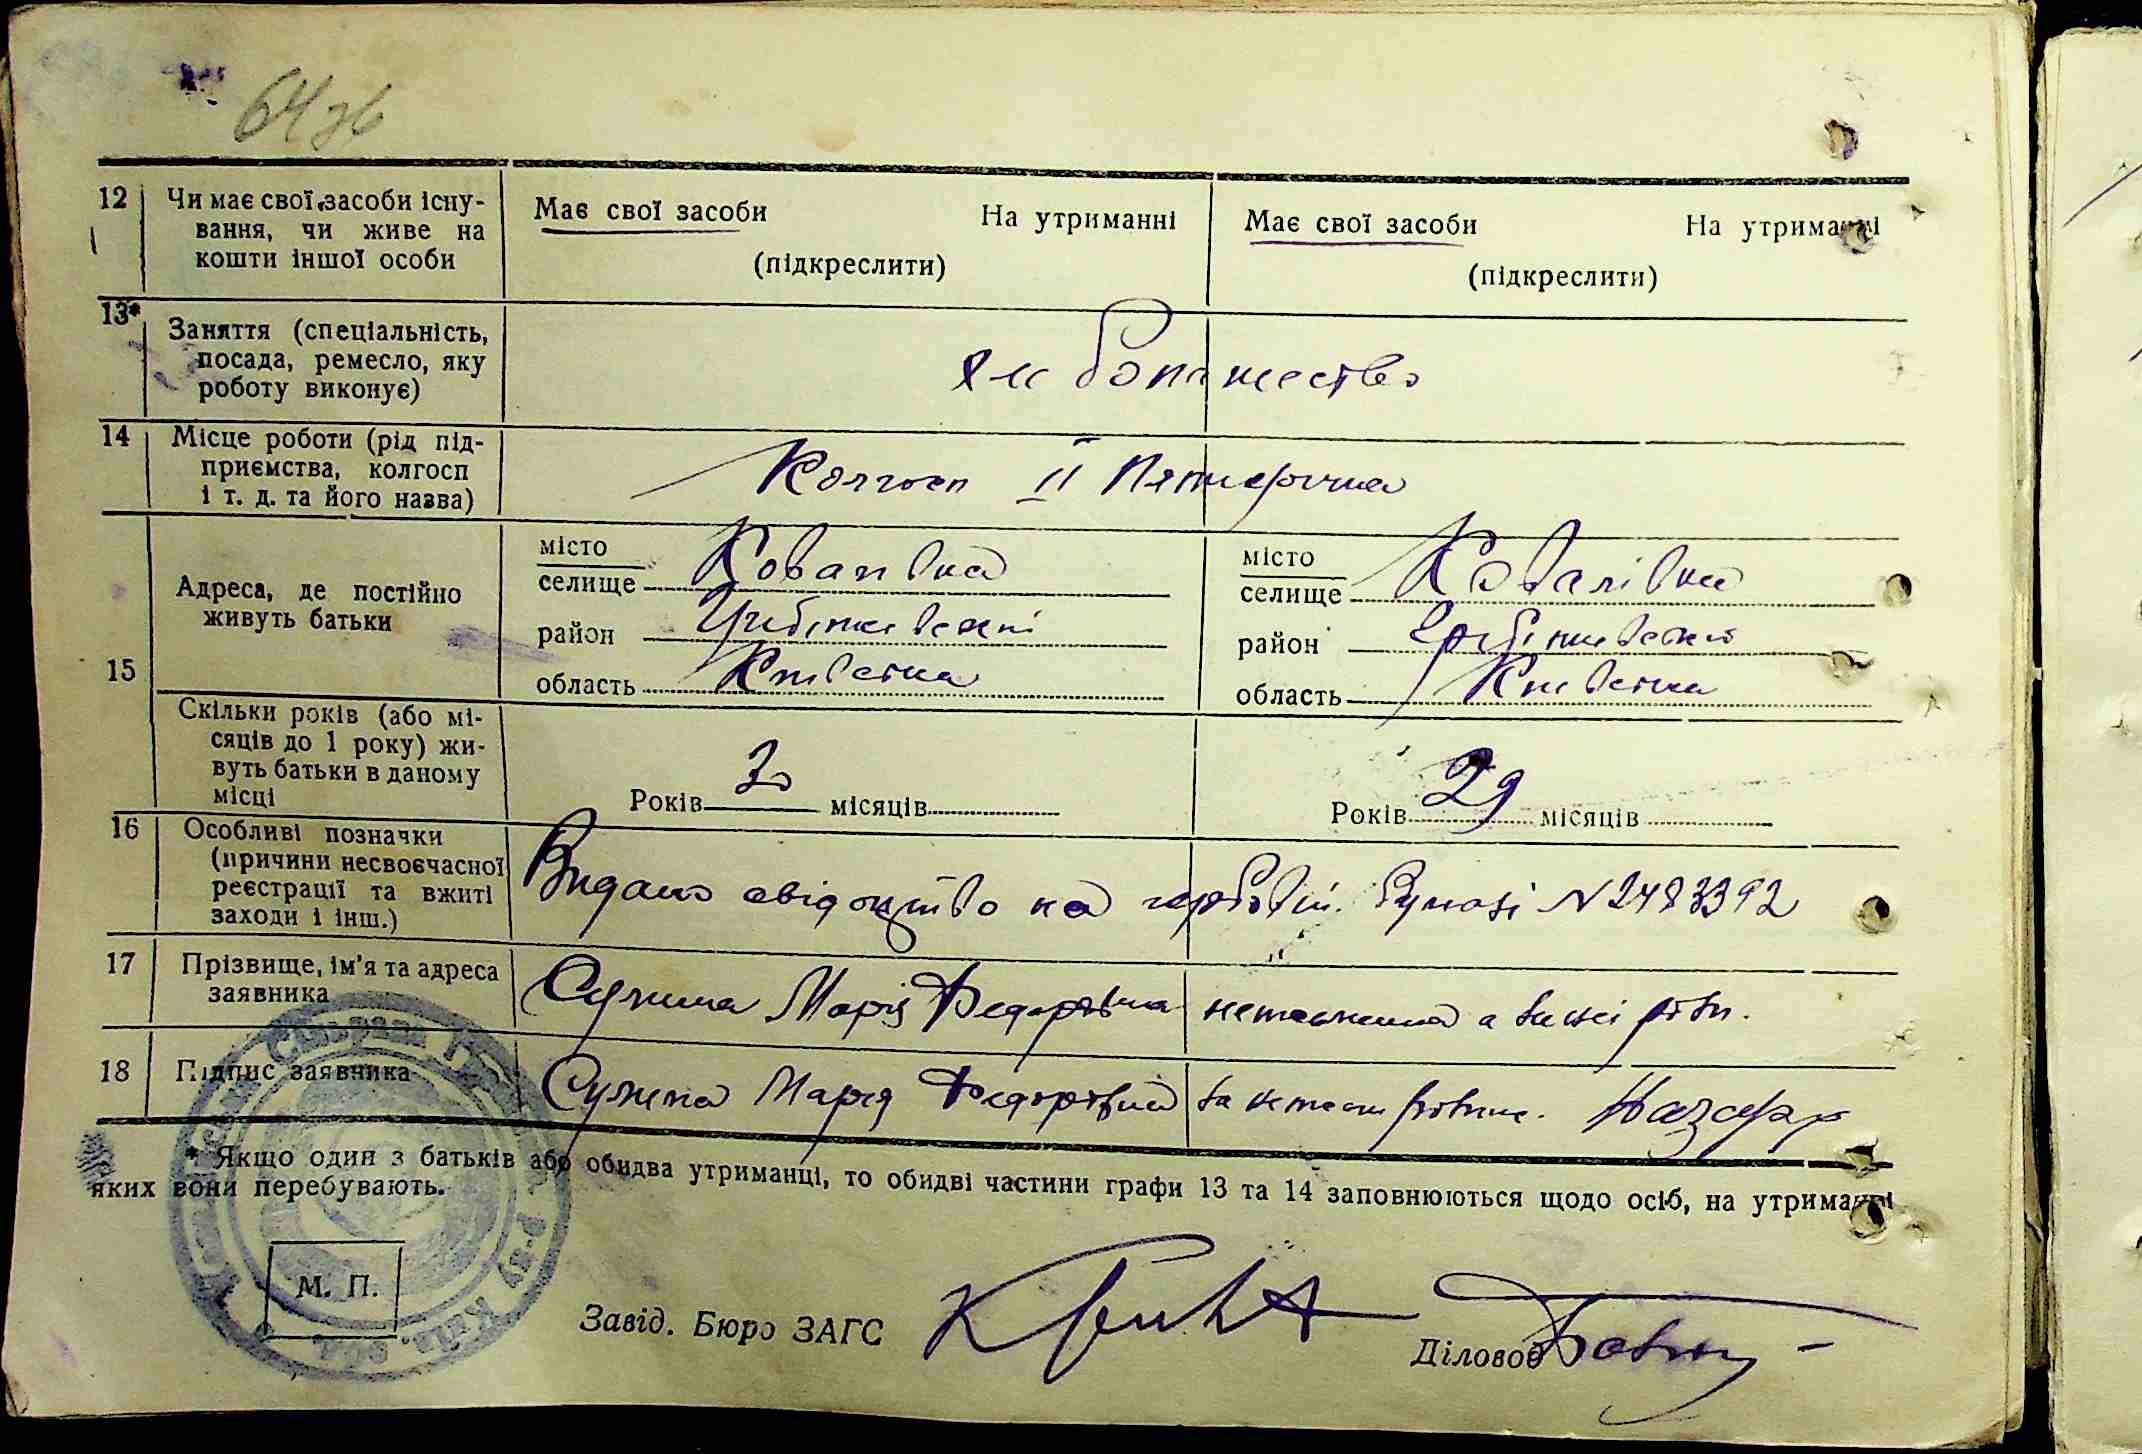 64зв
12 Чи має свої засоби існу-
вання, чи живе на
кошти іншої особи
Має свої засоби На утриманні
(підкреслити)
Має свої засоби На утриманні
(підкреслити)
13* Заняття (спеціальність,
посада, ремесло, яку
роботу виконує)
14 Місце роботи (рід під-
приємства, колгосп
і т. д. та його назва)
Колгосп II Пятирічка
15 Адреса, де постійно
живуть батьки
місто
селище Ковалівка
район Гребінківский
область Київська
місто
селище Ковалівка
район Гребінківский
область Київська
Скільки років (або мі-
сяців до 1 року) жи-
вуть батьки в даному
місці
Років 30 місяців
Років 29 місяців
16 Особливі позначки
(причини несвоєчасної
реєстрації та вжиті
заходи і інш.)
Видано свідоцтво на гербовій бумазі № 2483392
17 Прізвище, ім'я та адреса
заявника
Сулима Марія Федорівна
18 Підпис заявника
Сулима Марія Федорівна
* Якщо один з батьків або обидва утриманці, то обидві частини графи 13 та 14 заповнюються щодо осіб, на утриманні
яких вони перебувають.
М. П.
Завід. Бюро ЗАГС
Діловод